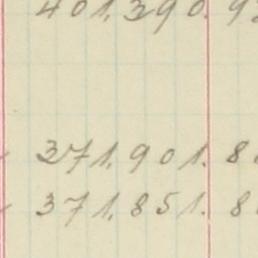 401,390.9
371,901.8
371,851.8